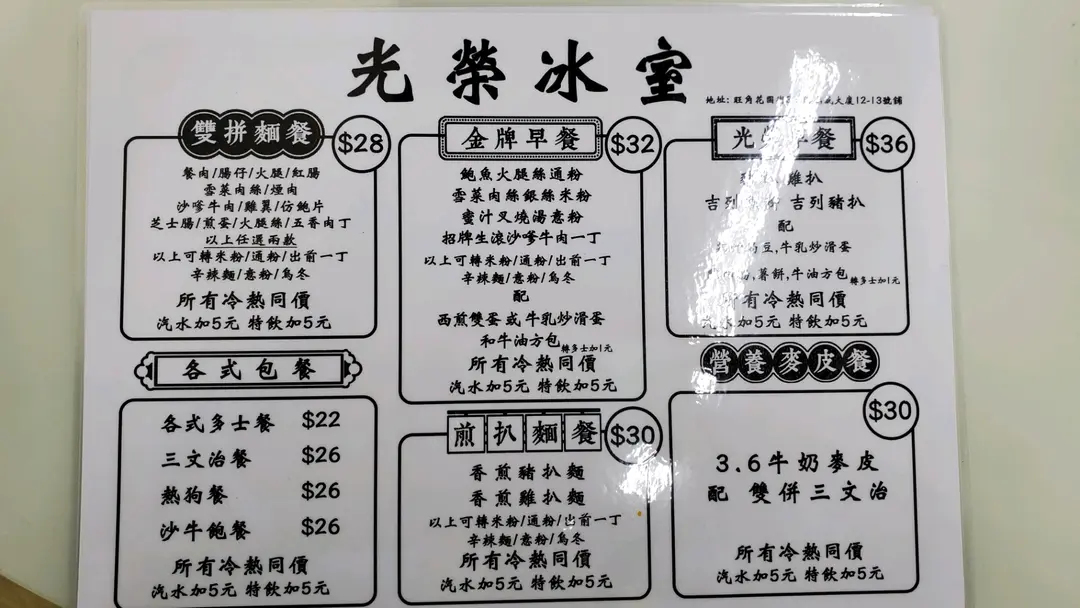 光榮冰室
地址: 旺角花園街 大廈12-13號鋪
雙拼麵餐 $28
餐肉/腸仔/火腿/紅腸
雪菜肉絲/煙肉
沙嗲牛肉/雞翼/仿鮑片
芝士腸/煎蛋/火腿絲/五香肉丁
以上任選兩款
以上可轉米粉/通粉/出前一丁
辛辣麵/意粉/烏冬
所有冷熱同價
汽水加5元 特飲加5元
各式包餐
各式多士餐 $22
三文治餐 $26
熱狗餐 $26
沙牛飽餐 $26
所有冷熱同價
汽水加5元 特飲加5元
金牌早餐 $32
鮑魚火腿絲通粉
雪菜肉絲銀絲米粉
蜜汁叉燒湯意粉
招牌生滾沙嗲牛肉一丁
以上可轉米粉/通粉/出前一丁
辛辣麵/意粉/烏冬
配
西煎雙蛋 或 牛乳炒滑蛋
和牛油方包 轉多士加1元
所有冷熱同價
汽水加5元 特飲加5元
煎扒麵餐 $30
香煎豬扒麵
香煎雞扒麵
以上可轉米粉/通粉/出前一丁
辛辣麵/意粉/烏冬
所有冷熱同價
汽水加5元 特飲加5元
光榮早餐 $36
雞扒
吉列 吉列豬扒
配
豆,牛乳炒滑蛋
薯餅,牛油方包 轉多士加1元
所有冷熱同價
汽水加5元 特飲加5元
營養麥皮餐
$30
3.6牛奶麥皮
配 雙併三文治
所有冷熱同價
汽水加5元 特飲加5元